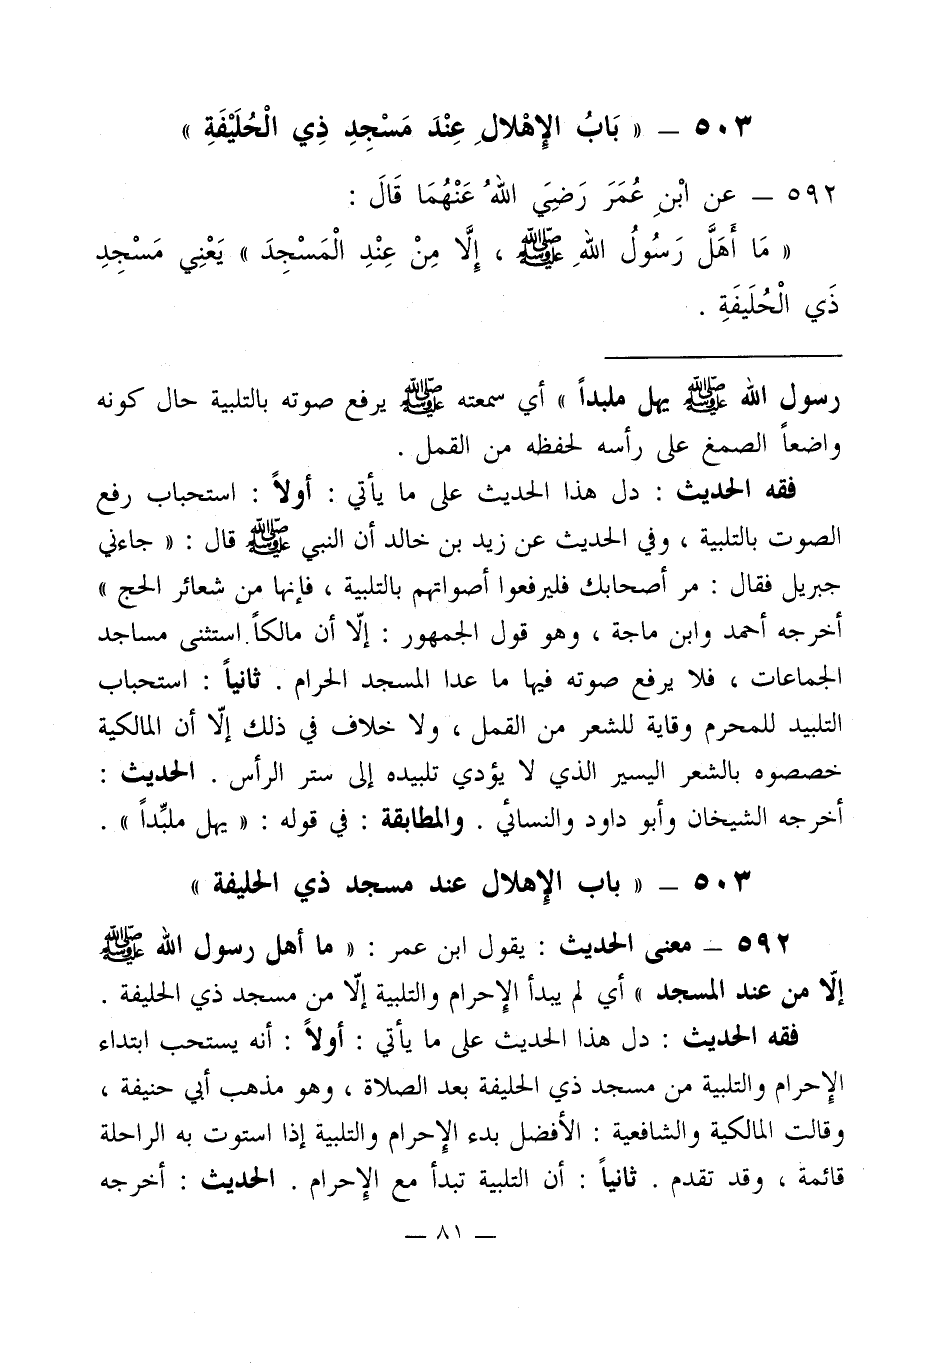 ٥٠٣ ــ « بَابُ الإِهْلالِ عِنْدَ مَسْجِدِ ذِي الْحُلَيْفَةِ »
٥٩٢ ــ عن ابْنِ عُمَرَ رَضِيَ اللهُ عَنْهُمَا قَالَ :
« مَا أَهَلَّ رَسُولُ اللهِ ﷺ ، إِلَّا مِنْ عِنْدِ الْمَسْجِدَ » يَعْنِي مَسْجِدِ
ذَي الْحُلَيفَةِ .
رسول الله ﷺ يهل ملبداً » أي سمعته ﷺ يرفع صوته بالتلبية حال كونه
واضعاً الصمغ على رأسه لحفظه من القمل .
فقه الحديث : دل هذا الحديث على ما يأتي : أولاً : استحباب رفع
الصوت بالتلبية ، وفي الحديث عن زيد بن خالد أن النبي ﷺ قال : « جاءني
جبريل فقال : مر أصحابك فليرفعوا أصواتهم بالتلبية ، فإنها من شعائر الحج »
أخرجه أحمد وابن ماجة ، وهو قول الجمهور : إلّا أن مالكاً استثنى مساجد
الجماعات ، فلا يرفع صوته فيها ما عدا المسجد الحرام . ثانياً : استحباب
التلبيد للمحرم وقاية للشعر من القمل ، ولا خلاف في ذلك إلّا أن المالكية
خصصوه بالشعر اليسير الذي لا يؤدي تلبيده إلى ستر الرأس . الحديث :
أخرجه الشيخان وأبو داود والنسائي . والمطابقة : في قوله : « يهل ملبِّداً » .
٥٠٣ ــ « باب الإهلال عند مسجد ذي الحليفة »
٥٩٢ ــ معنى الحديث : يقول ابن عمر : « ما أهل رسول الله ﷺ
إلّا من عند المسجد » أي لم يبدأ الإحرام والتلبية إلّا من مسجد ذي الحليفة .
فقه الحديث : دل هذا الحديث على ما يأتي : أولاً : أنه يستحب ابتداء
الإحرام والتلبية من مسجد ذي الحليفة بعد الصلاة ، وهو مذهب أبي حنيفة ،
وقالت المالكية والشافعية : الأفضل بدء الإحرام والتلبية إذا استوت به الراحلة
قائمة ، وقد تقدم . ثانياً : أن التلبية تبدأ مع الإحرام . الحديث : أخرجه
ــ ٨١ ــ